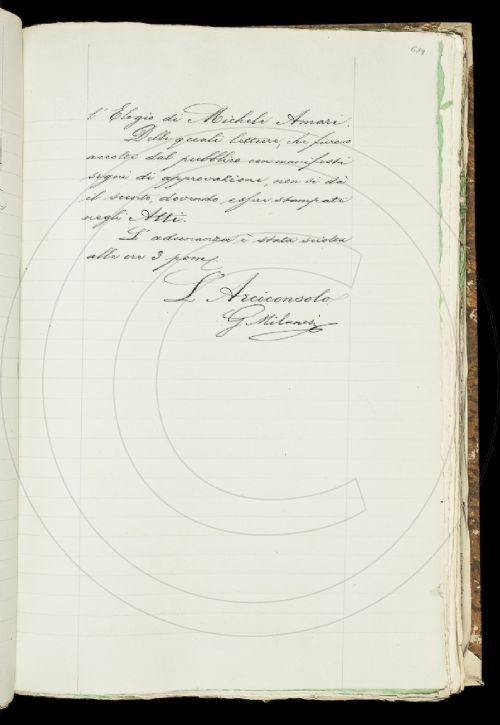 689
l'Elogio di Michele Amari.
Delle quali letture, che furono
accolte dal pubblico con manifesti
segni di approvazione, non si dà
il sunto, dovendo esser stampate
negli Atti.
L'adunanza è stata sciolta
alle ore 3 pom.
L'Arciconsolo
G. Milanesi